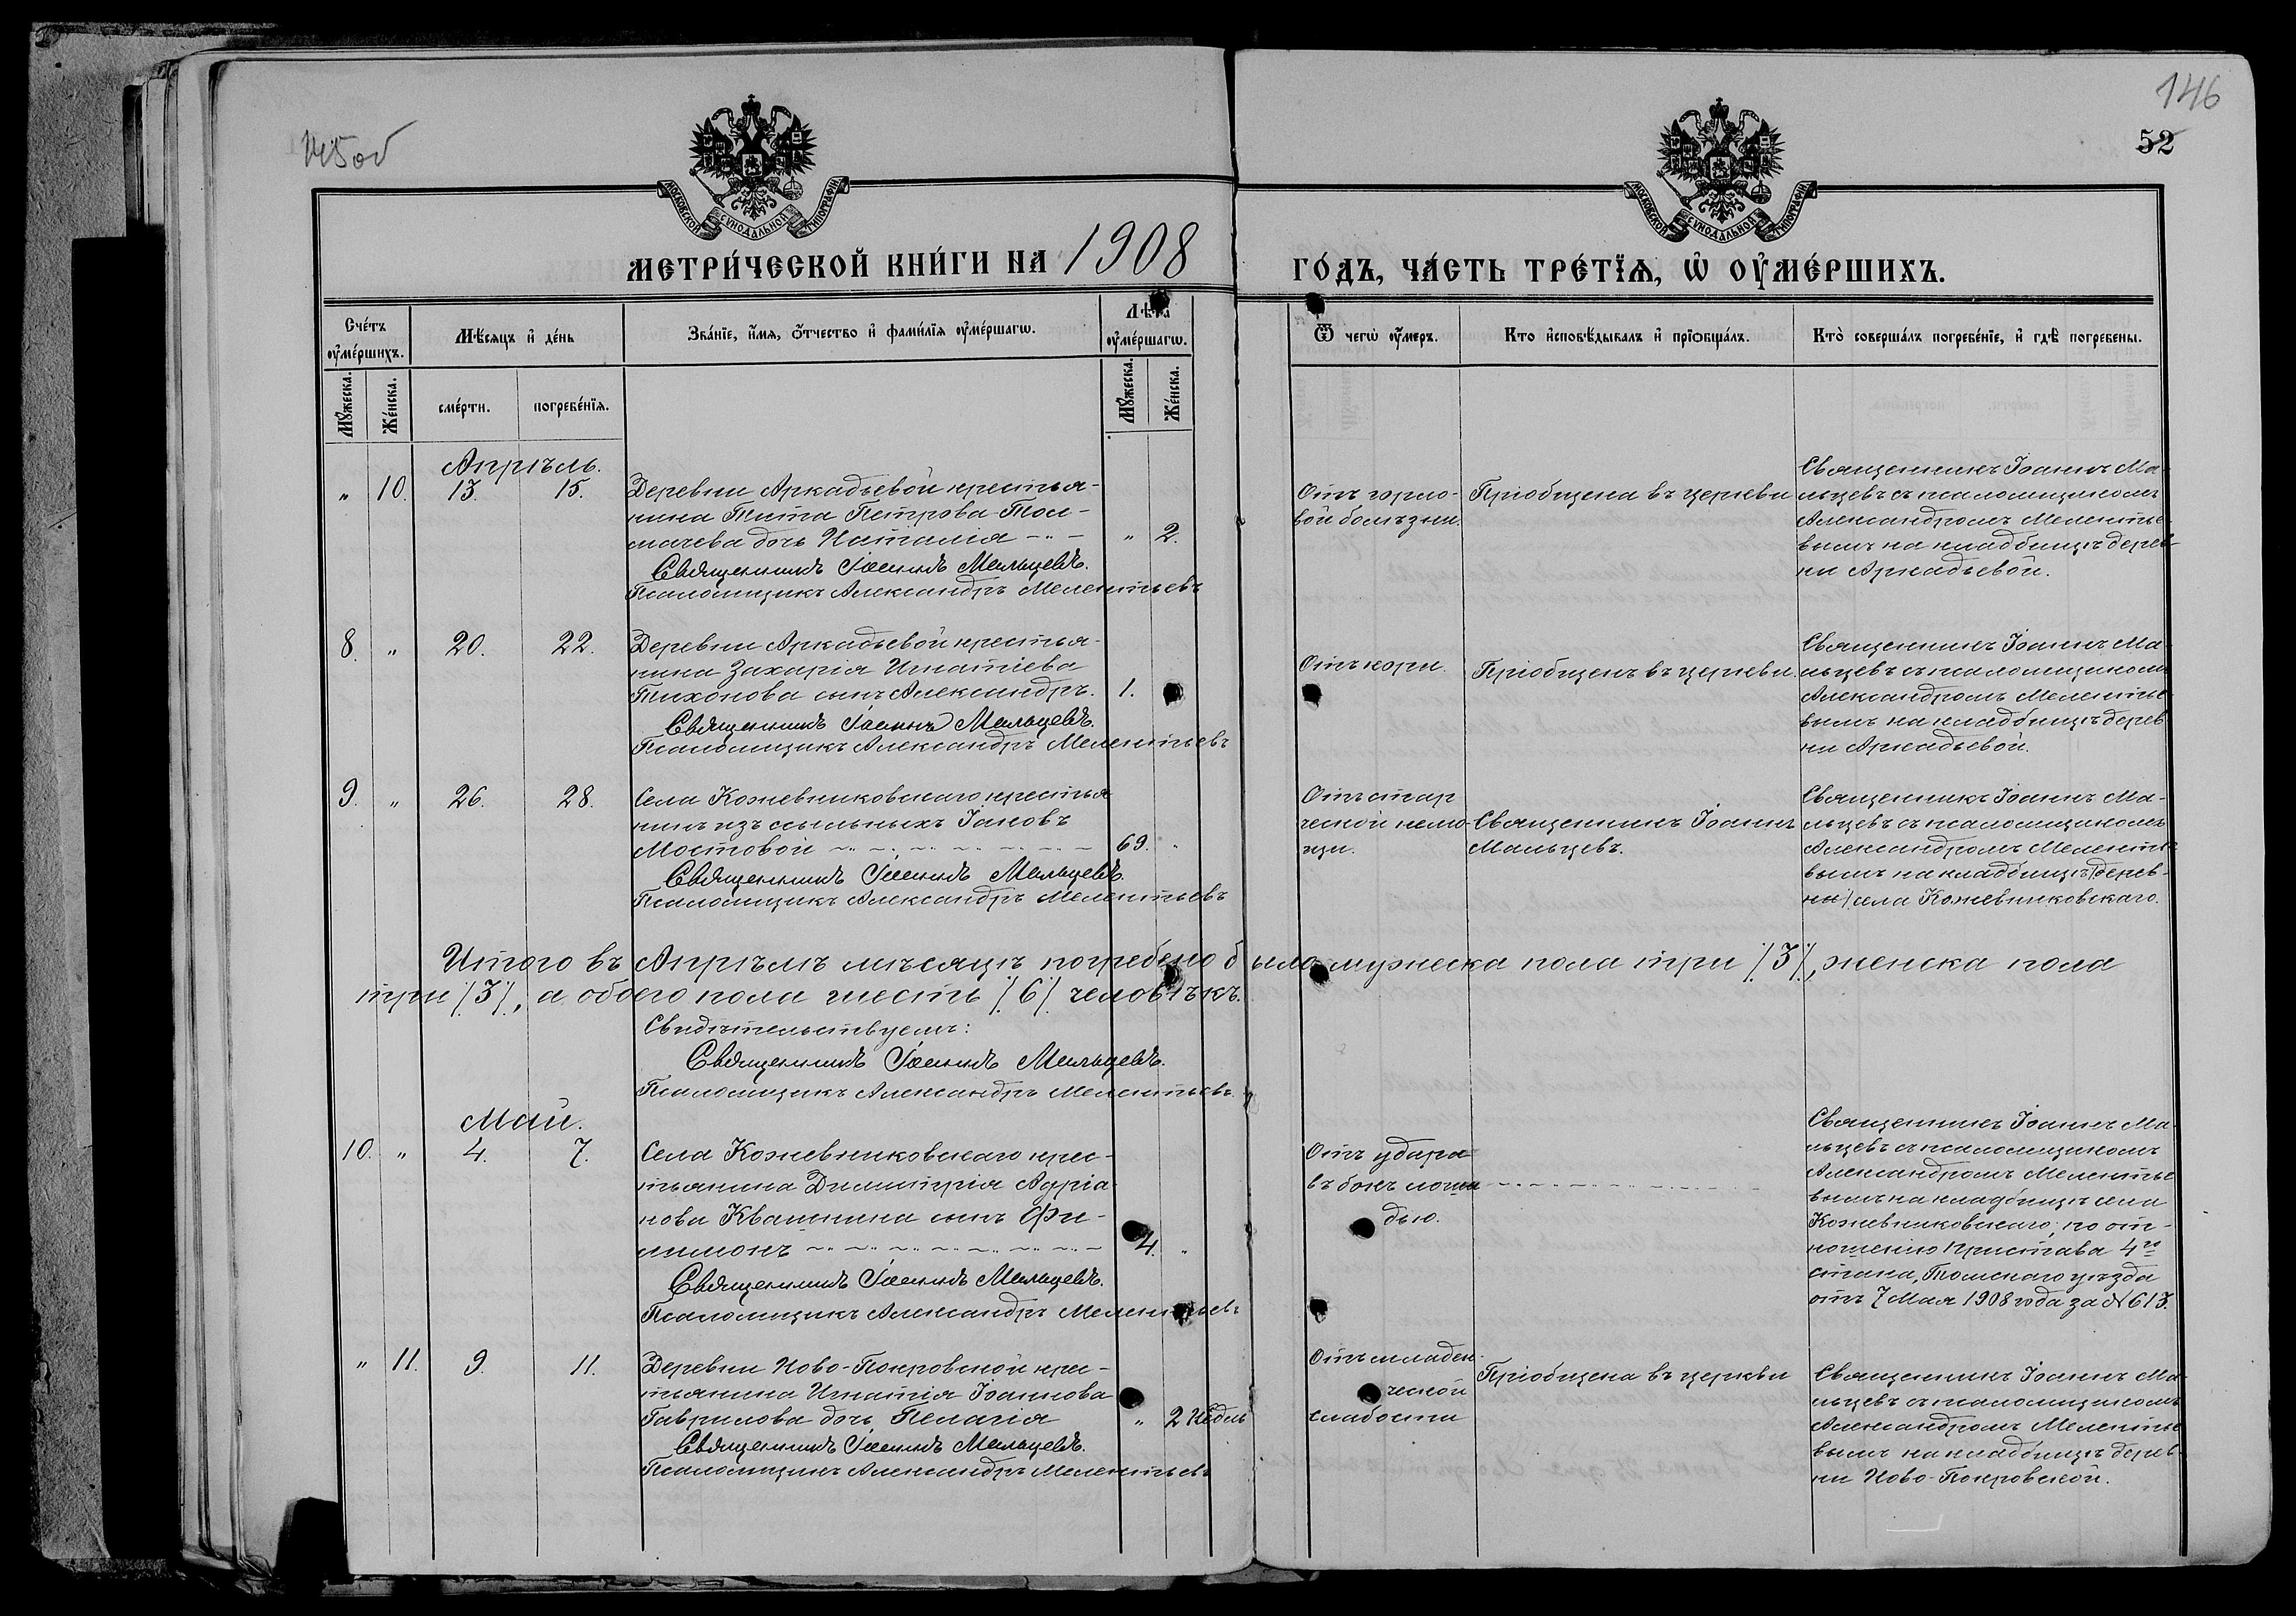 145об
146
52
МОСКОВСКОЙ СѴНОДАЛЬНОЙ ТИПОГРАФІИ
МОСКОВСКОЙ СѴНОДАЛЬНОЙ ТИПОГРАФІИ
МЕТРИ́ЧЕСКОЙ КНИ́ГИ НА 1908 ГО́ДЪ, ЧА́СТЬ ТРЕ́ТЇѦ, Ѡ҆ ОУ҆МЕ́РШИХЪ.
Сче́тъ оу҆ме́ршихъ.
Мѣ́сяцъ и҆ де́нь
Зва́нїе, и҆́мѧ, ѻ҆́тчество и҆ фами́лїѧ оу҆ме́ршагѡ.
Лѣ́та оу҆ме́ршагѡ.
Ѿ чегѡ̀ оу҆́меръ.
Кто̀ и҆сповѣ́дывалъ и҆ прїѡбща́лъ.
Кто̀ соверша́лъ погребе́нїе, и҆ гдѣ̀ погребены̀.
Мꙋ́жеска. Же́нска. сме́рти. погребе́нїѧ. Мꙋ́жеска. Же́нска.
Апрѣль.
" 10. 13. 15.
Деревни Аркадьевой крестья-
нина Тита Петрова Тол-
мачева дочь Наталія
" 2.
Священникъ Іоаннъ Мальцевъ.
Псаломщикъ Александръ Мелентьевъ
Отъ горло-
вой болѣзни.
Пріобщена въ церкви
Священникъ Іоаннъ Ма-
льцевъ съ псаломщикомъ
Александромъ Мелентье-
вымъ на кладбищѣ дерев-
ни Аркадьевой.
8. " 20. 22.
Деревни Аркадьевой крестья-
нина Захарія Игнатіева
Тихонова сынъ Александръ. 1.
Священникъ Іоаннъ Мальцевъ.
Псаломщикъ Александръ Мелентьевъ
Отъ кори.
Пріобщенъ въ церкви.
Священникъ Іоаннъ Ма-
льцевъ съ псаломщикомъ
Александромъ Мелентье-
вымъ на кладбищѣ дерев-
ни Аркадьевой.
9. " 26. 28.
Села Кожевниковскаго крестья
нинъ изъ ссыльныхъ Іаковъ
Мостовой 69. "
Священникъ Іоаннъ Мальцевъ.
Псаломщикъ Александръ Мелентьевъ
Отъ стар
ческой немо-
щи.
Священникъ Іоаннъ
Мальцевъ.
Священникъ Іоаннъ Ма-
льцевъ съ псаломщикомъ
Александромъ Мелентье-
вымъ на кладбищѣ (дерев-
ни) села Кожевниковскаго.
Итого въ Апрѣлѣ мѣсяцѣ погребено было мужеска пола три /3/, женска пола
три /3/, а обоего пола шесть /6/ человѣкъ.
Свидѣтельствуемъ:
Священникъ Іоаннъ Мальцевъ.
Псаломщикъ Александръ Мелентьевъ.
Май.
10. " 4. 7.
Села Кожевниковскаго крес-
тьянина Димитрія Адріа-
нова Квашнина сынъ Фи-
лимонъ 4. "
Священникъ Іоаннъ Мальцевъ.
Псаломщикъ Александръ Мелентьевъ
Отъ удара
въ бокъ лоша
дью.
Священникъ Іоаннъ Ма-
льцевъ съ псаломщикомъ
Александромъ Мелентье
вымъ на кладбищѣ села
Кожевниковскаго, по от-
ношенію пристава 4го
стана, Томскаго уѣзда
отъ 7 Мая 1908 года за № 613.
" 11. 9. 11.
Деревни Ново-Покровской крес-
тьянина Игнатія Іоаннова
Гаврилова дочь Пелагія
" 2 недѣл
Священникъ Іоаннъ Мальцевъ.
Псаломщикъ Александръ Мелентьевъ
Отъ младен-
ческой
слабости
Пріобщена въ церкви
Священникъ Іоаннъ Ма-
льцевъ съ псаломщикомъ
Александромъ Мелентье
вымъ на кладбищѣ дерев-
ни Ново-Покровской.